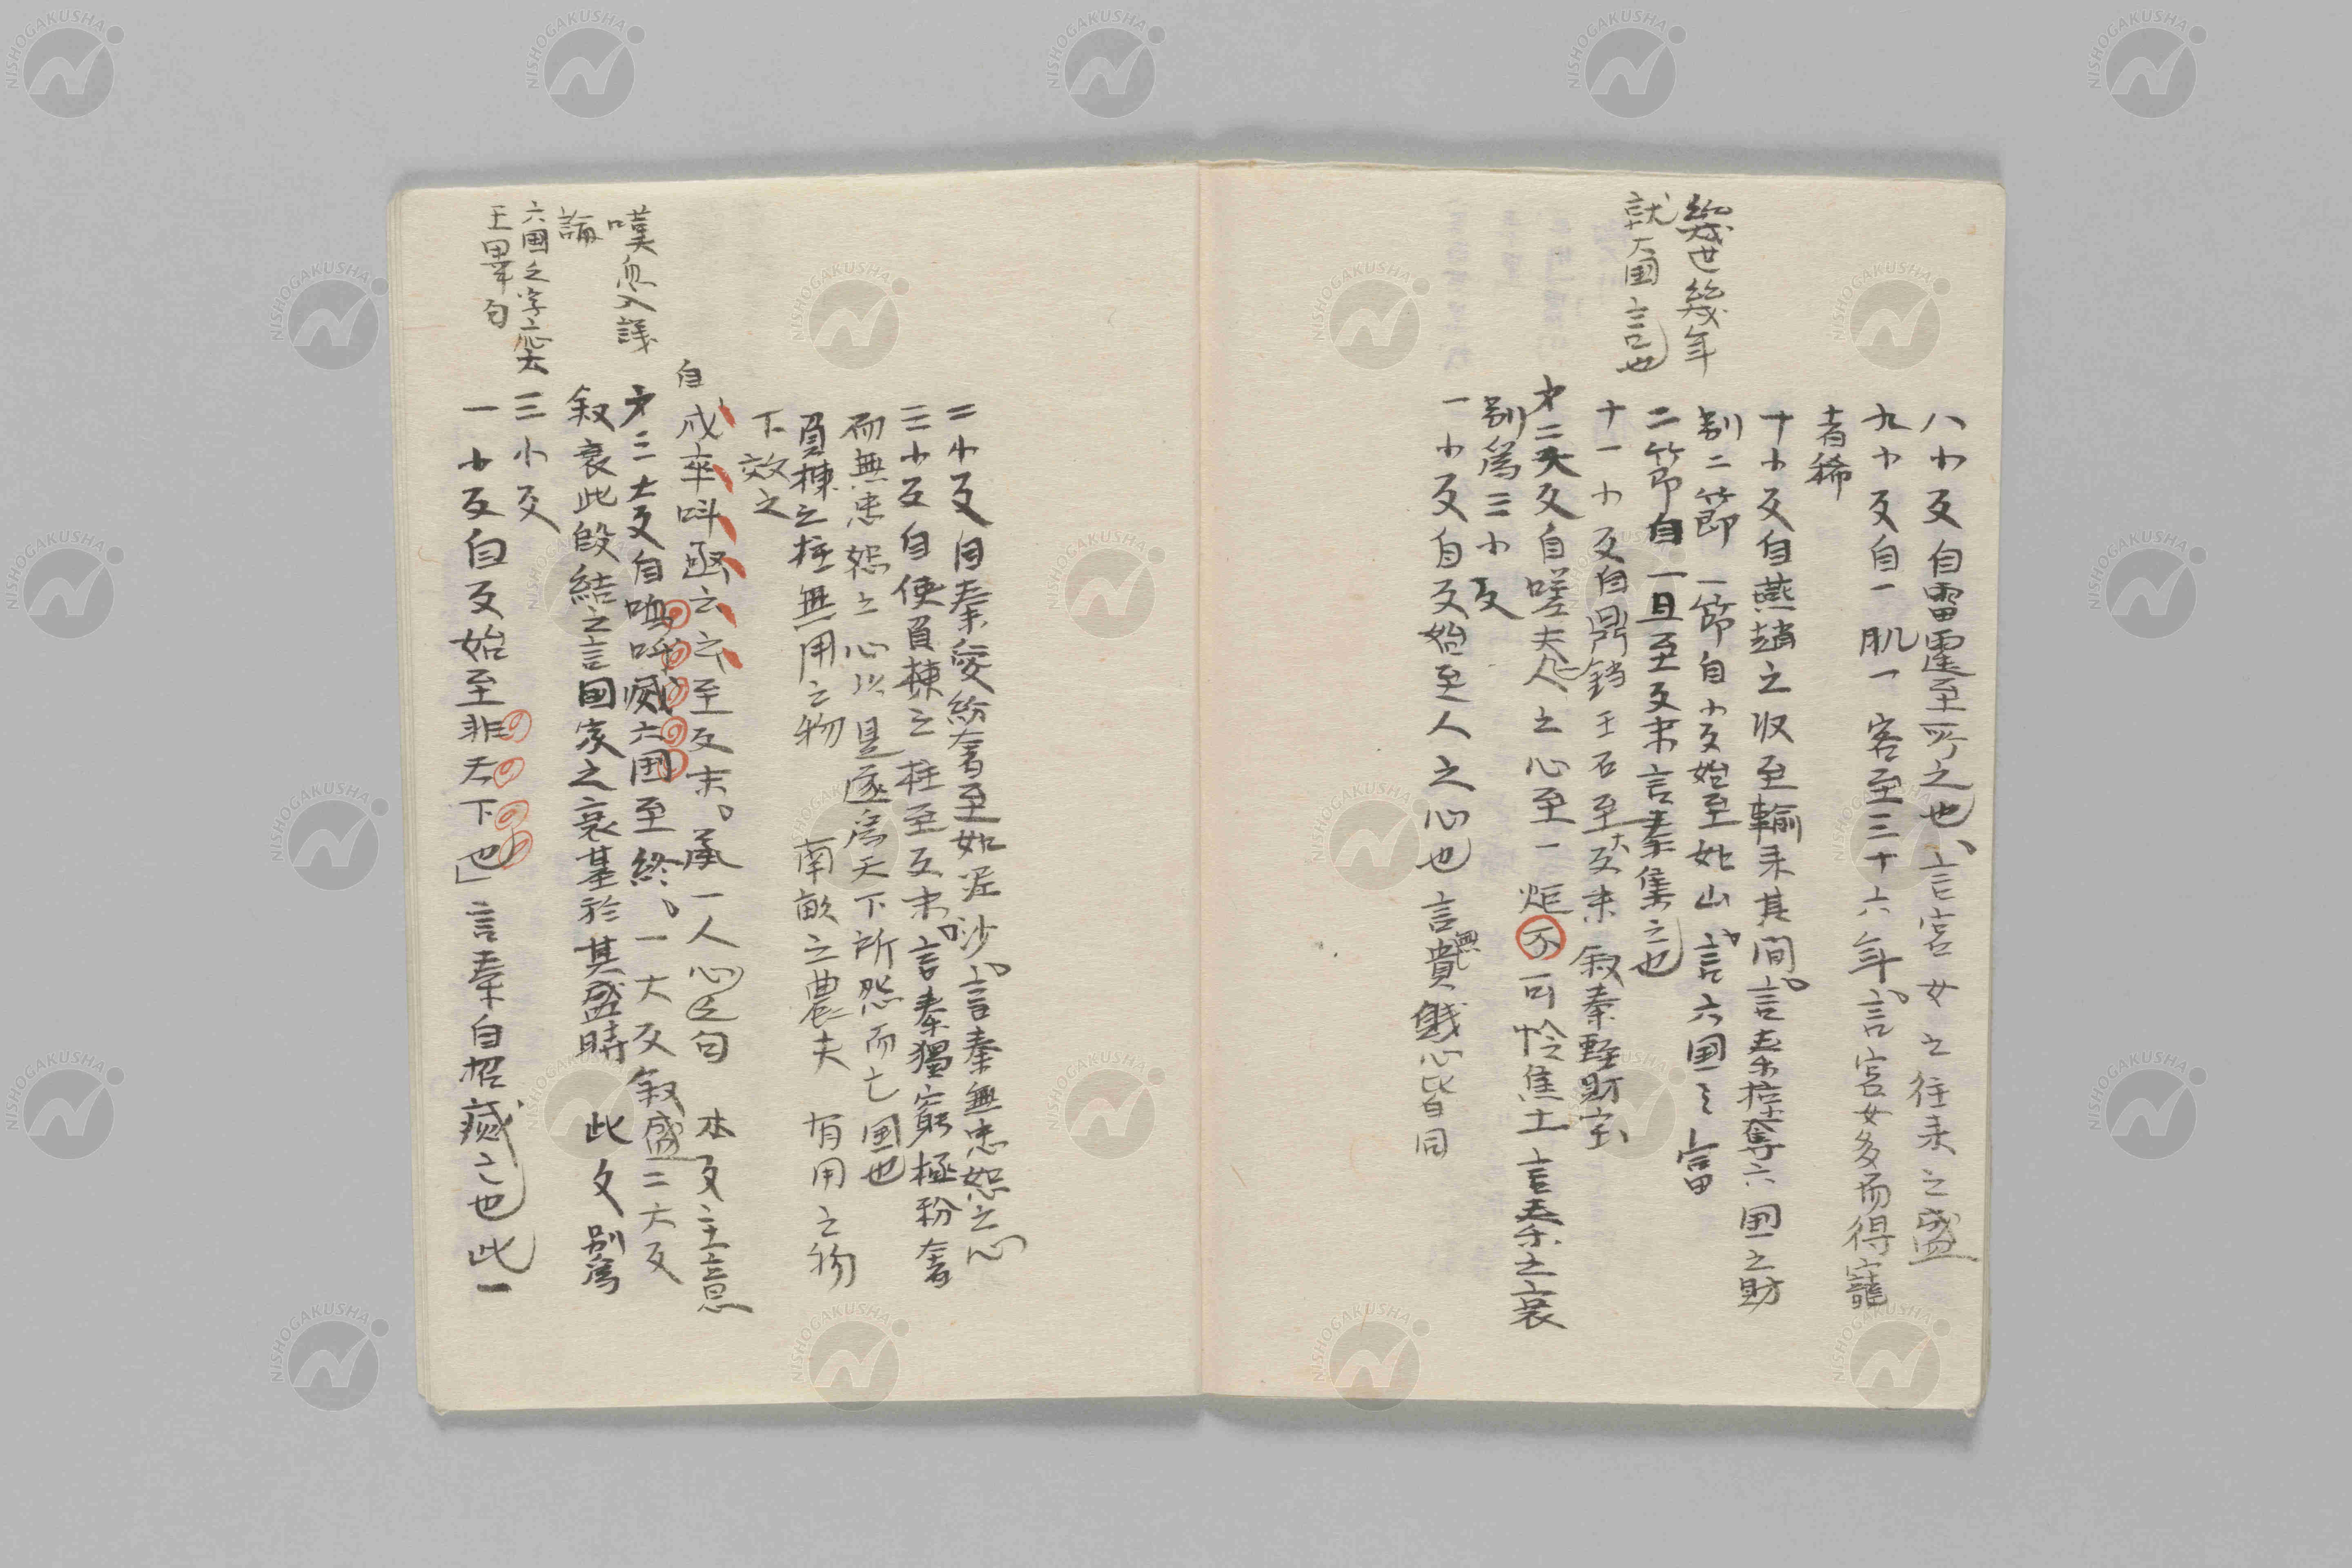 幾世幾年
就六国言也
八小叚自雷霆至所之也、言宮女之往来之盛
九小叚自一肌一客至三十六年。言宮女多而得寵
者稀
十小叚自燕趙之収至輸来其間。言秦掠奪六国之財
別二節 一節自小叚始至如山。言六国之富
二節自一旦至叚末言秦集之也
十一小叚自鼎鐺玉石至大叚末 叙秦軽財宝
才二大叚自嗟夫一人之心至一炬不可怜焦土 言秦之衰
別為三小叚
一小叚自叚始至人之心也 言無貴賤心皆同
二小叚自秦愛紛奢至如泥沙。言秦無忠恕之心
三小叚自使負棟之柱至叚末。言秦獨窮極紛奢
而無忠恕之心以是遂為天下所怨而亡国也
負棟之柱無用之物 南畝之農夫 有用之物
下效之
自戍卒叫函云云至叚末。承一人心之句 本叚主意
嘆息入議
論
才三大叚自嗚呼滅六国至終、。一大叚叙盛二大叚
叙衰此段結之言国家之衰基於其盛時 此文別為
六国之字応六
王畢句
三小叚
一小叚自叚始至非天下也」言秦自招滅亡也此一
NISHOGAKUSHA